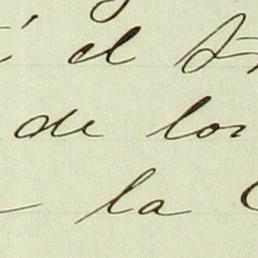 el
de los
la